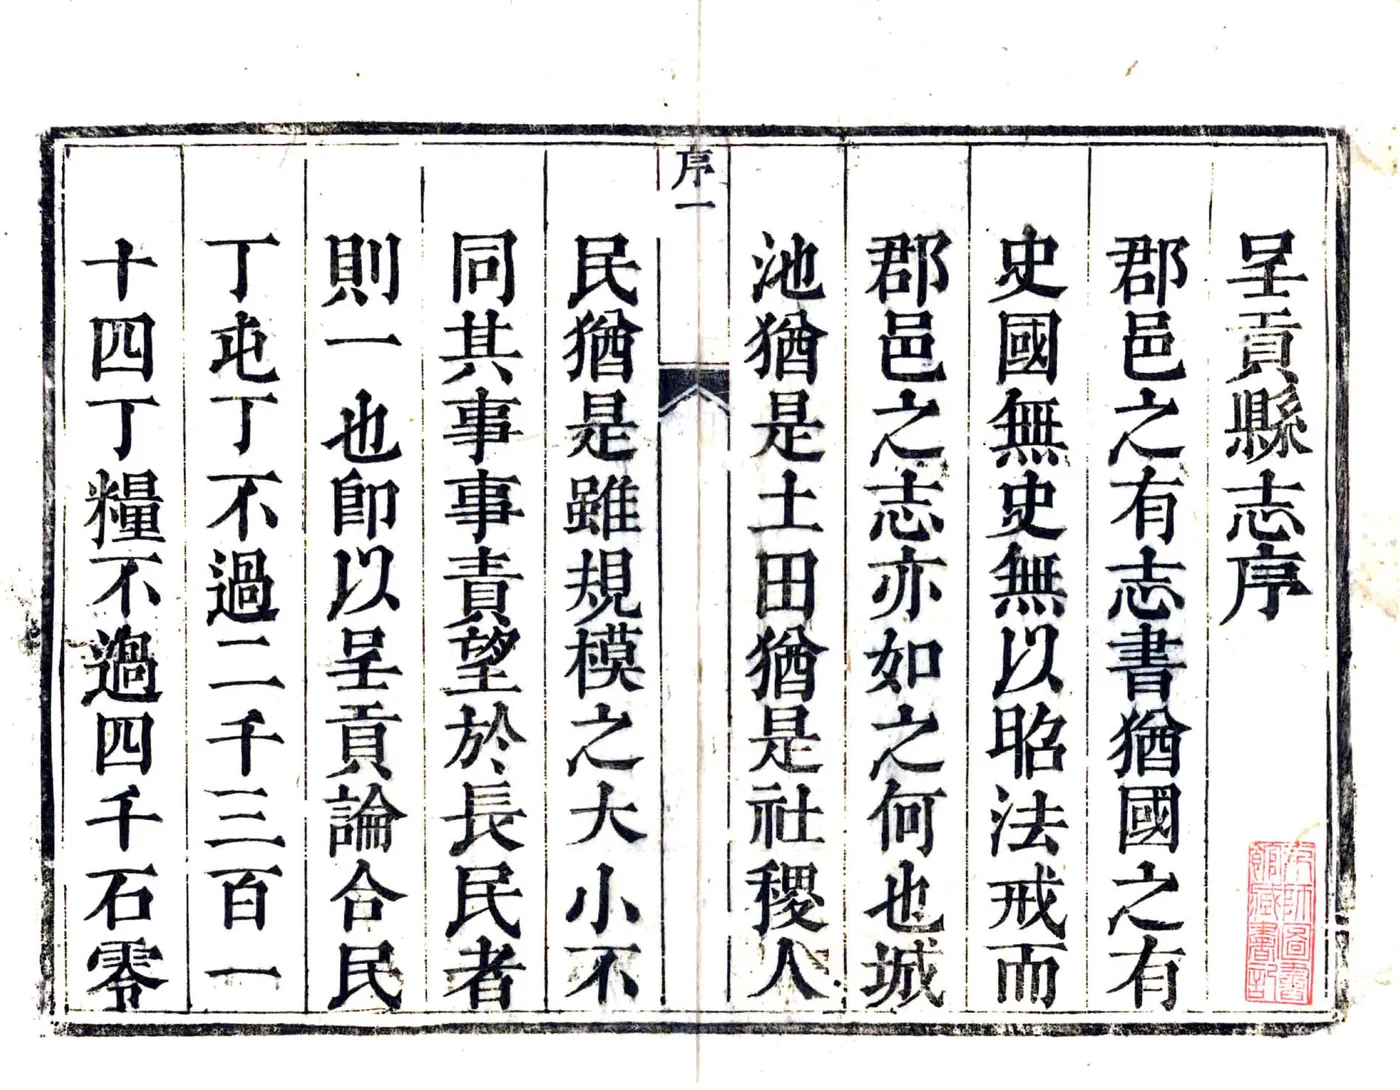 呈貢縣志序
郡邑之有志書猶國之有
史國無史無以昭法戒而
郡邑之志亦如之何也城
池猶是土田猶是社稷人
序一
民猶是雖規模之大小不
同其事事責望於長民者
則一也即以呈貢論合民
丁屯丁不過二千三百一
十四丁糧不過四千石零
京師圖書
館藏書記